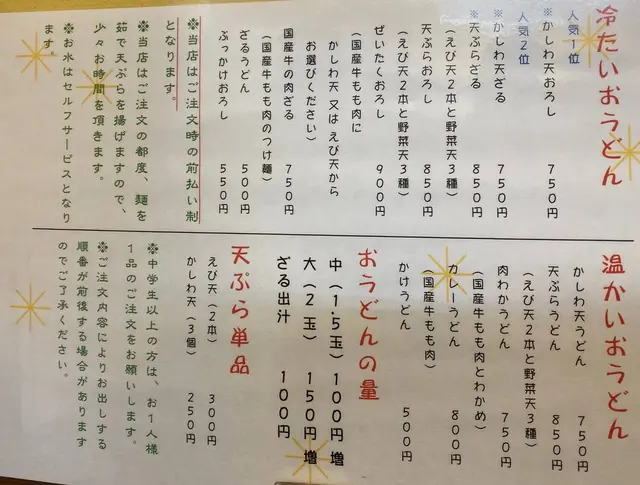 冷たいおうどん
人気1位
※かしわ天おろし 750円
人気2位
※かしわ天ざる 750円
※天ぷらざる 850円
(えび天2本と野菜天3種)
天ぷらおろし 850円
(えび天2本と野菜天3種)
ぜいたくおろし 900円
(国産牛もも肉に
かしわ天 又は えび天から
お選びください)
国産牛の肉ざる 750円
(国産牛もも肉のつけ麺)
ざるうどん 500円
ぶっかけおろし 550円
※当店はご注文時の前払い制
となります。
※当店はご注文の都度、麺を
茹で天ぷらを揚げますので、
少々お時間を頂きます。
※お水はセルフサービスとなり
ます。
温かいおうどん
かしわ天うどん 750円
天ぷらうどん 850円
(えび天2本と野菜天3種)
肉わかうどん 750円
(国産牛もも肉とわかめ)
カレーうどん 800円
(国産牛もも肉)
かけうどん 500円
おうどんの量
中(1.5玉) 100円増
大(2玉) 150円増
ざる出汁 100円
天ぷら単品
えび天(2本) 300円
かしわ天(3個) 250円
※中学生以上の方は、お1人様
1品のご注文をお願いします。
※ご注文内容によりお出しする
順番が前後する場合があります
のでご了承ください。